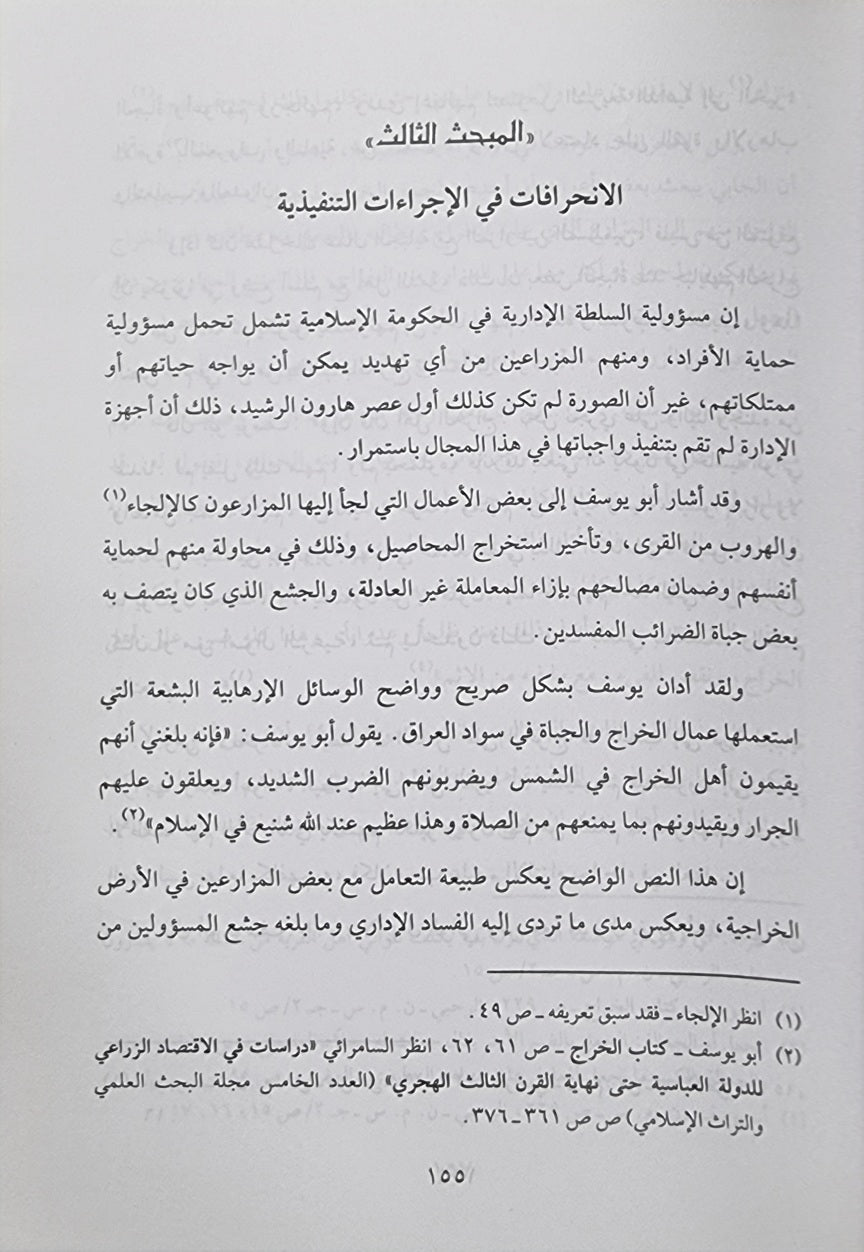 «المبحث الثالث»
الانحرافات في الإجراءات التنفيذية
إن مسؤولية السلطة الإدارية في الحكومة الإسلامية تشمل تحمل مسؤولية
حماية الأفراد، ومنهم المزراعين من أي تهديد يمكن أن يواجه حياتهم أو
ممتلكاتهم، غير أن الصورة لم تكن كذلك أول عصر هارون الرشيد، ذلك أن أجهزة
الإدارة لم تقم بتنفيذ واجباتها في هذا المجال باستمرار.
وقد أشار أبو يوسف إلى بعض الأعمال التي لجأ إليها المزارعون كالإلجاء(١)
والهروب من القرى، وتأخير استخراج المحاصيل، وذلك في محاولة منهم لحماية
أنفسهم وضمان مصالحهم بإزاء المعاملة غير العادلة، والجشع الذي كان يتصف به
بعض جباة الضرائب المفسدين.
ولقد أدان يوسف بشكل صريح وواضح الوسائل الإرهابية البشعة التي
استعملها عمال الخراج والجباة في سواد العراق. يقول أبو يوسف: «فإنه بلغني أنهم
يقيمون أهل الخراج في الشمس ويضربونهم الضرب الشديد، ويعلقون عليهم
الجرار ويقيدونهم بما يمنعهم من الصلاة وهذا عظيم عند الله شنيع في الإسلام»(٢).
إن هذا النص الواضح يعكس طبيعة التعامل مع بعض المزارعين في الأرض
الخراجية، ويعكس مدى ما تردى إليه الفساد الإداري وما بلغه جشع المسؤولين من
(١) انظر الإلجاء ـ فقد سبق تعريفه ـ ص ٤٩.
(٢) أبو يوسف ـ كتاب الخراج ـ ص ٦١، ٦٢، انظر السامرائي «دراسات في الاقتصاد الزراعي
للدولة العباسية حتى نهاية القرن الثالث الهجري» (العدد الخامس مجلة البحث العلمي
والتراث الإسلامي) ص ص ٣٦١ ـ ٣٧٦.
١٥٥